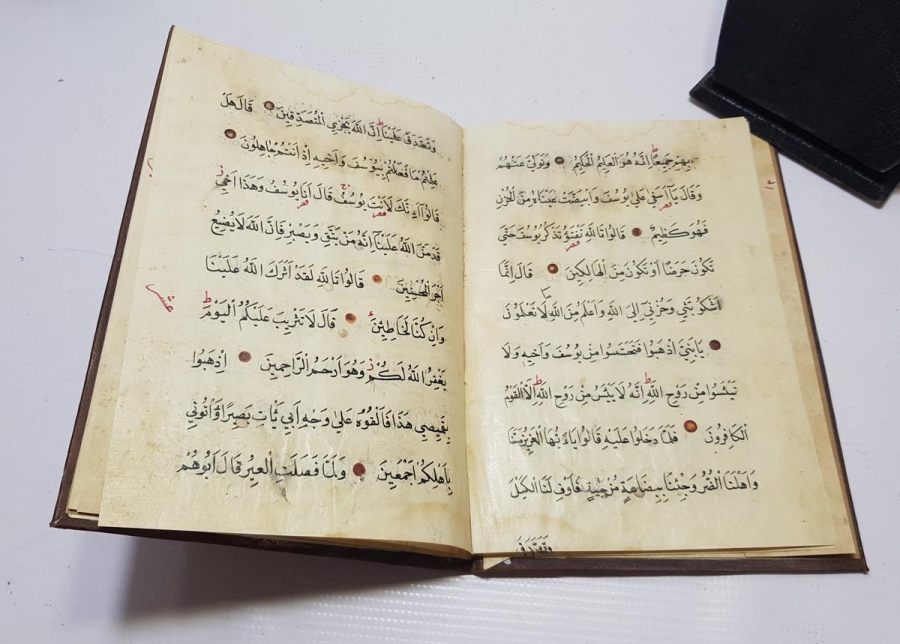 بِهِمْ جَمِيعًا اِنَّهُ هُوَ الْعَلِيمُ الْحَكِيمُ وَتَوَلّٰى عَنْهُمْ
وَقَالَ يَا اَسَفٰى عَلٰى يُوسُفَ وَابْيَضَّتْ عَيْنَاهُ مِنَ الْحُزْنِ
فَهُوَ كَظِيمٌ قَالُوا تَاللّٰهِ تَفْتَؤُ تَذْكُرُ يُوسُفَ حَتّٰى
تَكُونَ حَرَضًا اَوْ تَكُونَ مِنَ الْهَالِكِينَ قَالَ اِنَّمَا
اَشْكُو بَثِّي وَحُزْنِي اِلَى اللّٰهِ وَاَعْلَمُ مِنَ اللّٰهِ مَا لَا تَعْلَمُونَ
يَا بَنِيَّ اذْهَبُوا فَتَحَسَّسُوا مِنْ يُوسُفَ وَاَخِيهِ وَلَا
تَيْئَسُوا مِنْ رَوْحِ اللّٰهِ اِنَّهُ لَا يَيْئَسُ مِنْ رَوْحِ اللّٰهِ اِلَّا الْقَوْمُ
الْكَافِرُونَ فَلَمَّا دَخَلُوا عَلَيْهِ قَالُوا يَا اَيُّهَا الْعَزِيزُ مَسَّنَا
وَاَهْلَنَا الضُّرُّ وَجِئْنَا بِبِضَاعَةٍ مُزْجٰيةٍ فَاَوْفِ لَنَا الْكَيْلَ
وَتَصَدَّقْ
وَتَصَدَّقْ عَلَيْنَا اِنَّ اللّٰهَ يَجْزِي الْمُتَصَدِّقِينَ قَالَ هَلْ
عَلِمْتُمْ مَا فَعَلْتُمْ بِيُوسُفَ وَاَخِيهِ اِذْ اَنْتُمْ جَاهِلُونَ
قَالُوا ءَاِنَّكَ لَاَنْتَ يُوسُفُ قَالَ اَنَا يُوسُفُ وَهٰذَا اَخِي
قَدْ مَنَّ اللّٰهُ عَلَيْنَا اِنَّهُ مَنْ يَتَّقِ وَيَصْبِرْ فَاِنَّ اللّٰهَ لَا يُضِيعُ
اَجْرَ الْمُحْسِنِينَ قَالُوا تَاللّٰهِ لَقَدْ اٰثَرَكَ اللّٰهُ عَلَيْنَا
وَاِنْ كُنَّا لَخَاطِئِينَ قَالَ لَا تَثْرِيبَ عَلَيْكُمُ الْيَوْمَ
يَغْفِرُ اللّٰهُ لَكُمْ وَهُوَ اَرْحَمُ الرَّاحِمِينَ اِذْهَبُوا
بِقَمِيصِي هٰذَا فَاَلْقُوهُ عَلٰى وَجْهِ اَبِي يَأْتِ بَصِيرًا وَأْتُونِي
بِاَهْلِكُمْ اَجْمَعِينَ وَلَمَّا فَصَلَتِ الْعِيرُ قَالَ اَبُوهُمْ
عشر